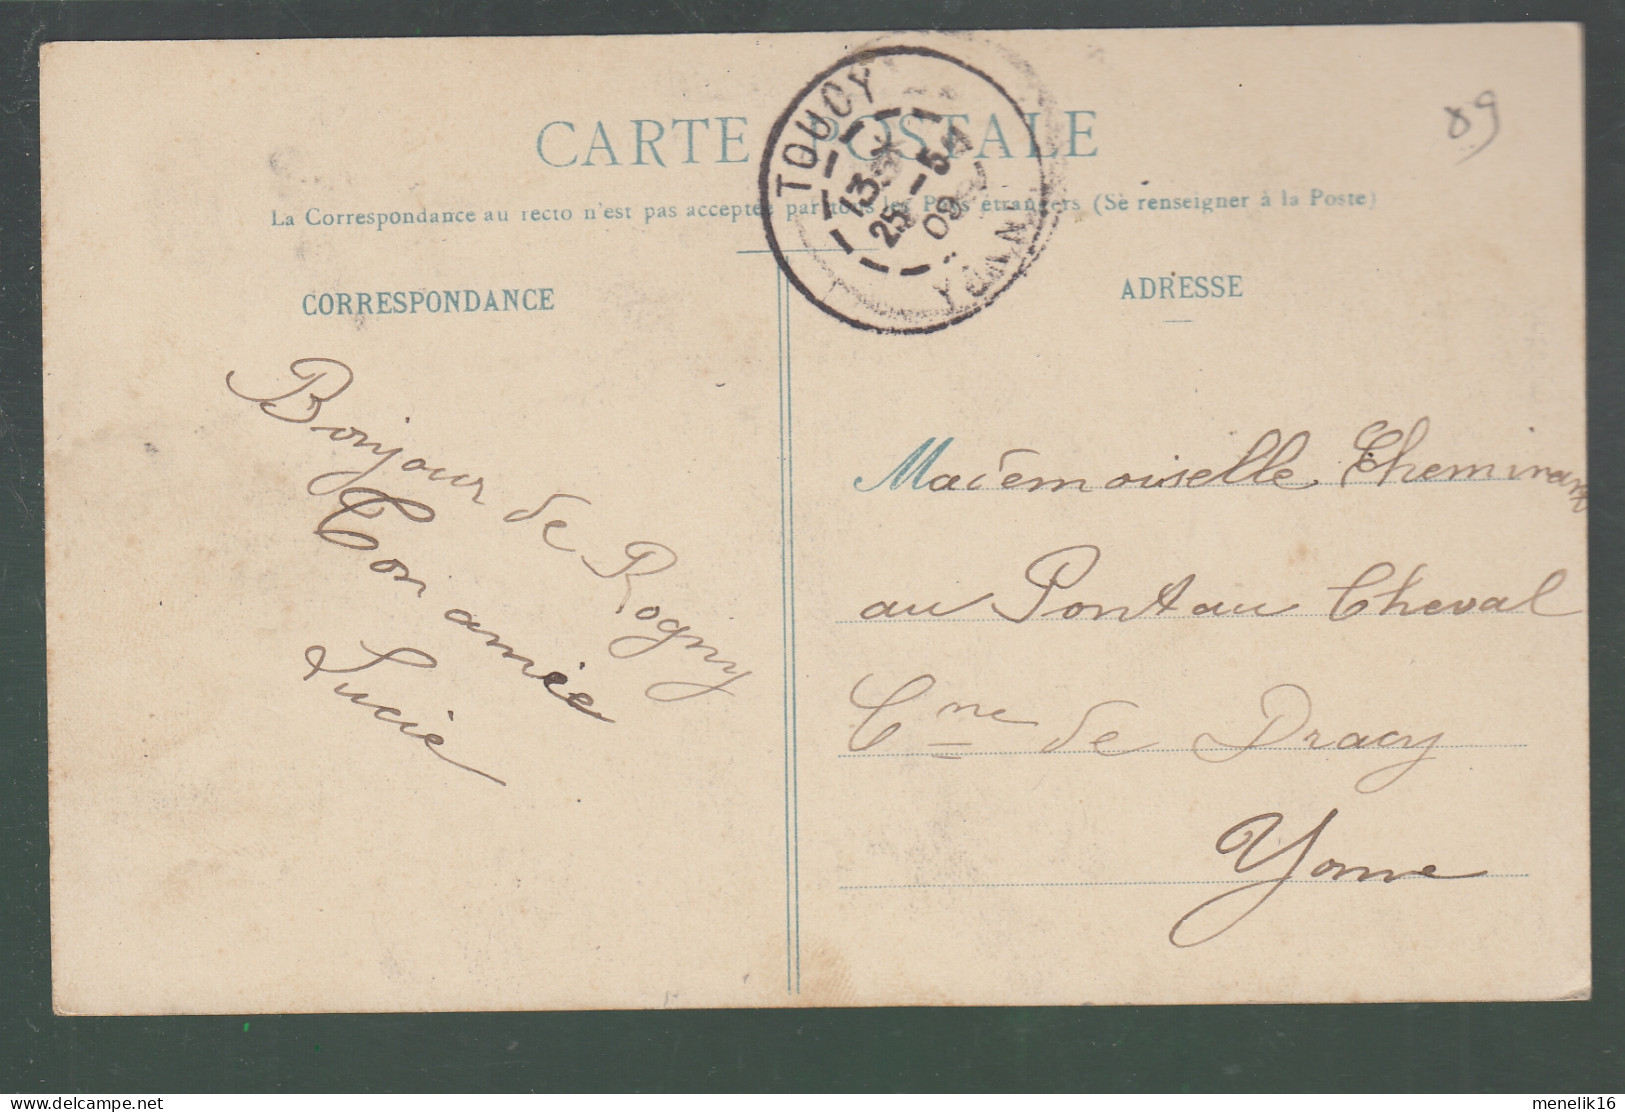 CARTE POSTALE
89
La Correspondance au recto n'est pas acceptée par tous les Pays étrangers (Se renseigner à la Poste)
TOUCY
13
25 - 5
09
CORRESPONDANCE
ADRESSE
Bonjour de Rogny
Ton amie
Lucie
Mademoiselle
au Pont au Cheval
Cne de Dracy
Yonne
menelik16